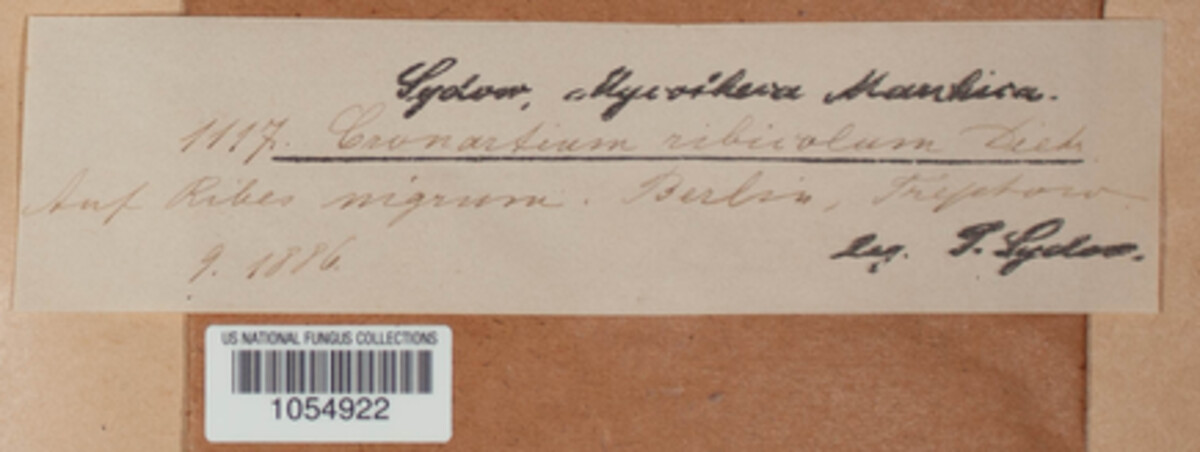 Sydow, Mycotheca Marchica.
1117. Cronartium ribicolum Dietr.
Auf Ribes nigrum. Berlin, Treptow.
9. 1886.
leg. P. Sydow.
US NATIONAL FUNGUS COLLECTIONS
1054922